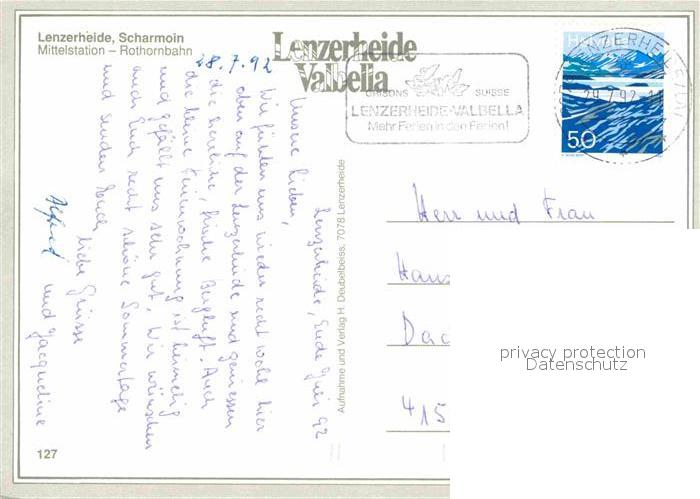 Lenzerheide, Scharmoin
Mittelstation – Rothornbahn
28.7.92
Lenzerheide
Valbella
GRISONS SUISSE
LENZERHEIDE-VALBELLA
Mehr Ferien in den Ferien!
LENZERHEIDE
29.7.92
HELVETIA
50
Lenzerheide, Ende Juli 92
Unsere Lieben,
Wir fühlen uns wieder recht wohl hier
oben auf der Lenzerheide und geniessen
die herrliche, frische Bergluft. Auch
die kleine Ferienwohnung ist heimelig
und gefällt uns sehr gut. Wir wünschen
auch Euch recht schöne Sommertage
und senden Euch
liebe Grüsse
Alfred und Jacqueline
Aufnahme und Verlag H. Deubelbeiss, 7078 Lenzerheide
Herr und Frau
Hans
Dac
415
privacy protection
Datenschutz
127